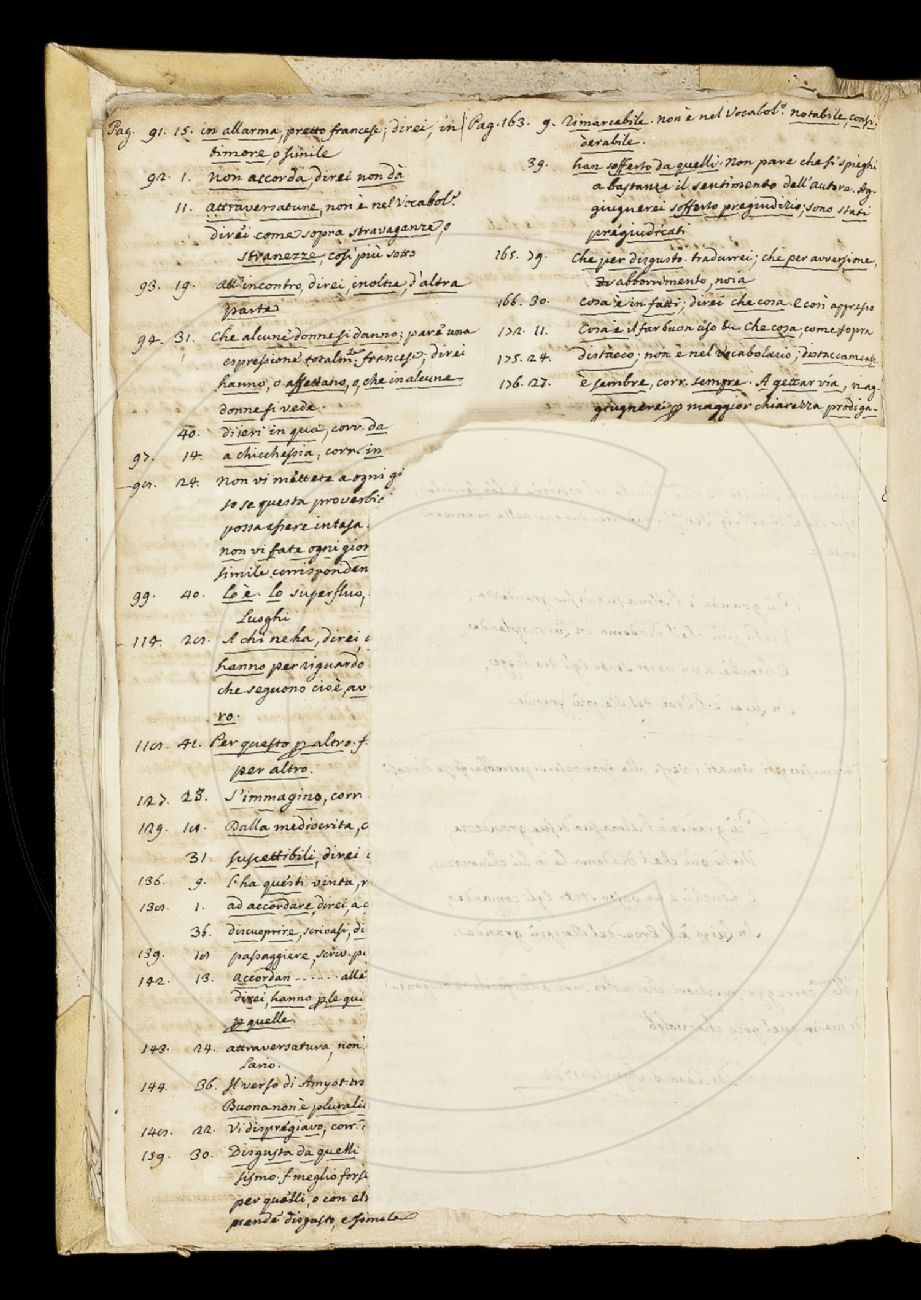 Pag. 91. 15. in allarma, pretto francese; direi, in
timore, o simile
92. 1. Non accorda, direi non dà
11. attraversature, non è nel Vocabol.º
direi come sopra stravaganze, o
stranezze, così più sotto
93. 19. all'incontro, direi, inoltre, d'altra
parte
94. 31. Che alcune donne si danno; pare una
espressione totalm.te francese, direi
hanno, o affettano, o, che in alcune
donne si vede.
40. di ieri in qua, corr. da
97. 14. a chicchesia, corr. in
98. 24. Non vi mettete a ogni gi
so se questa proverbi
possa essere intesa
non vi fate ogni gior
simile corrisponden
99. 40. Lo è. Lo superfluo,
Luoghi
114. 28. A chi ne ha, direi
hanno per riguardo
che seguono cioè, av
ro.
118. 41. Per questo p altro. f.
per altro.
127. 23. S'immagino, corr.
129. 18. Dalla mediocrita, c
31 suscettibili, direi
136. 9. l'ha questi vinta, r
138. 1. ad accordare, direi, a c
36. discuoprire, scrivasi, di
139. 18 passaggiere, scriv. pa
142. 13. accordan ....... alle
direi, hanno p le qu
p quelle.
143. 24. attraversatura, non
Lario.
144. 36. Il verso di Amyot tro
Buona non è plurali
148. 22. Vi dispregiavo, corr.
159. 30. Disgusta da quelli
sismo. f meglio forse
per quelli, o con el
prende disgusto, e simile
Pag. 163. 9. Rimarcabile. non è nel Vocabol.º notabile, consi
derabile.
39. han sofferto da quelli. Non pare che si spieghi
a bastanza il sentimento dell'autore. Ag
giugnerei sofferto pregiudizio, sono stati
pregiudicati
165. 39. Che per disgusto. tradurrei; che per avversione.
abborrimento, noia
166. 30. cosa è in fatti; direi che cosa. e così appresso
172. 11. Cosa è il far buon uso &c Che cosa, come sopra
175. 24. distacco; non è nel Vocabolario; distaccament.
176. 27. è sembre, corr. sempre. A gettar via, v'ag
giugnerei p maggior chiarezza prodiga-